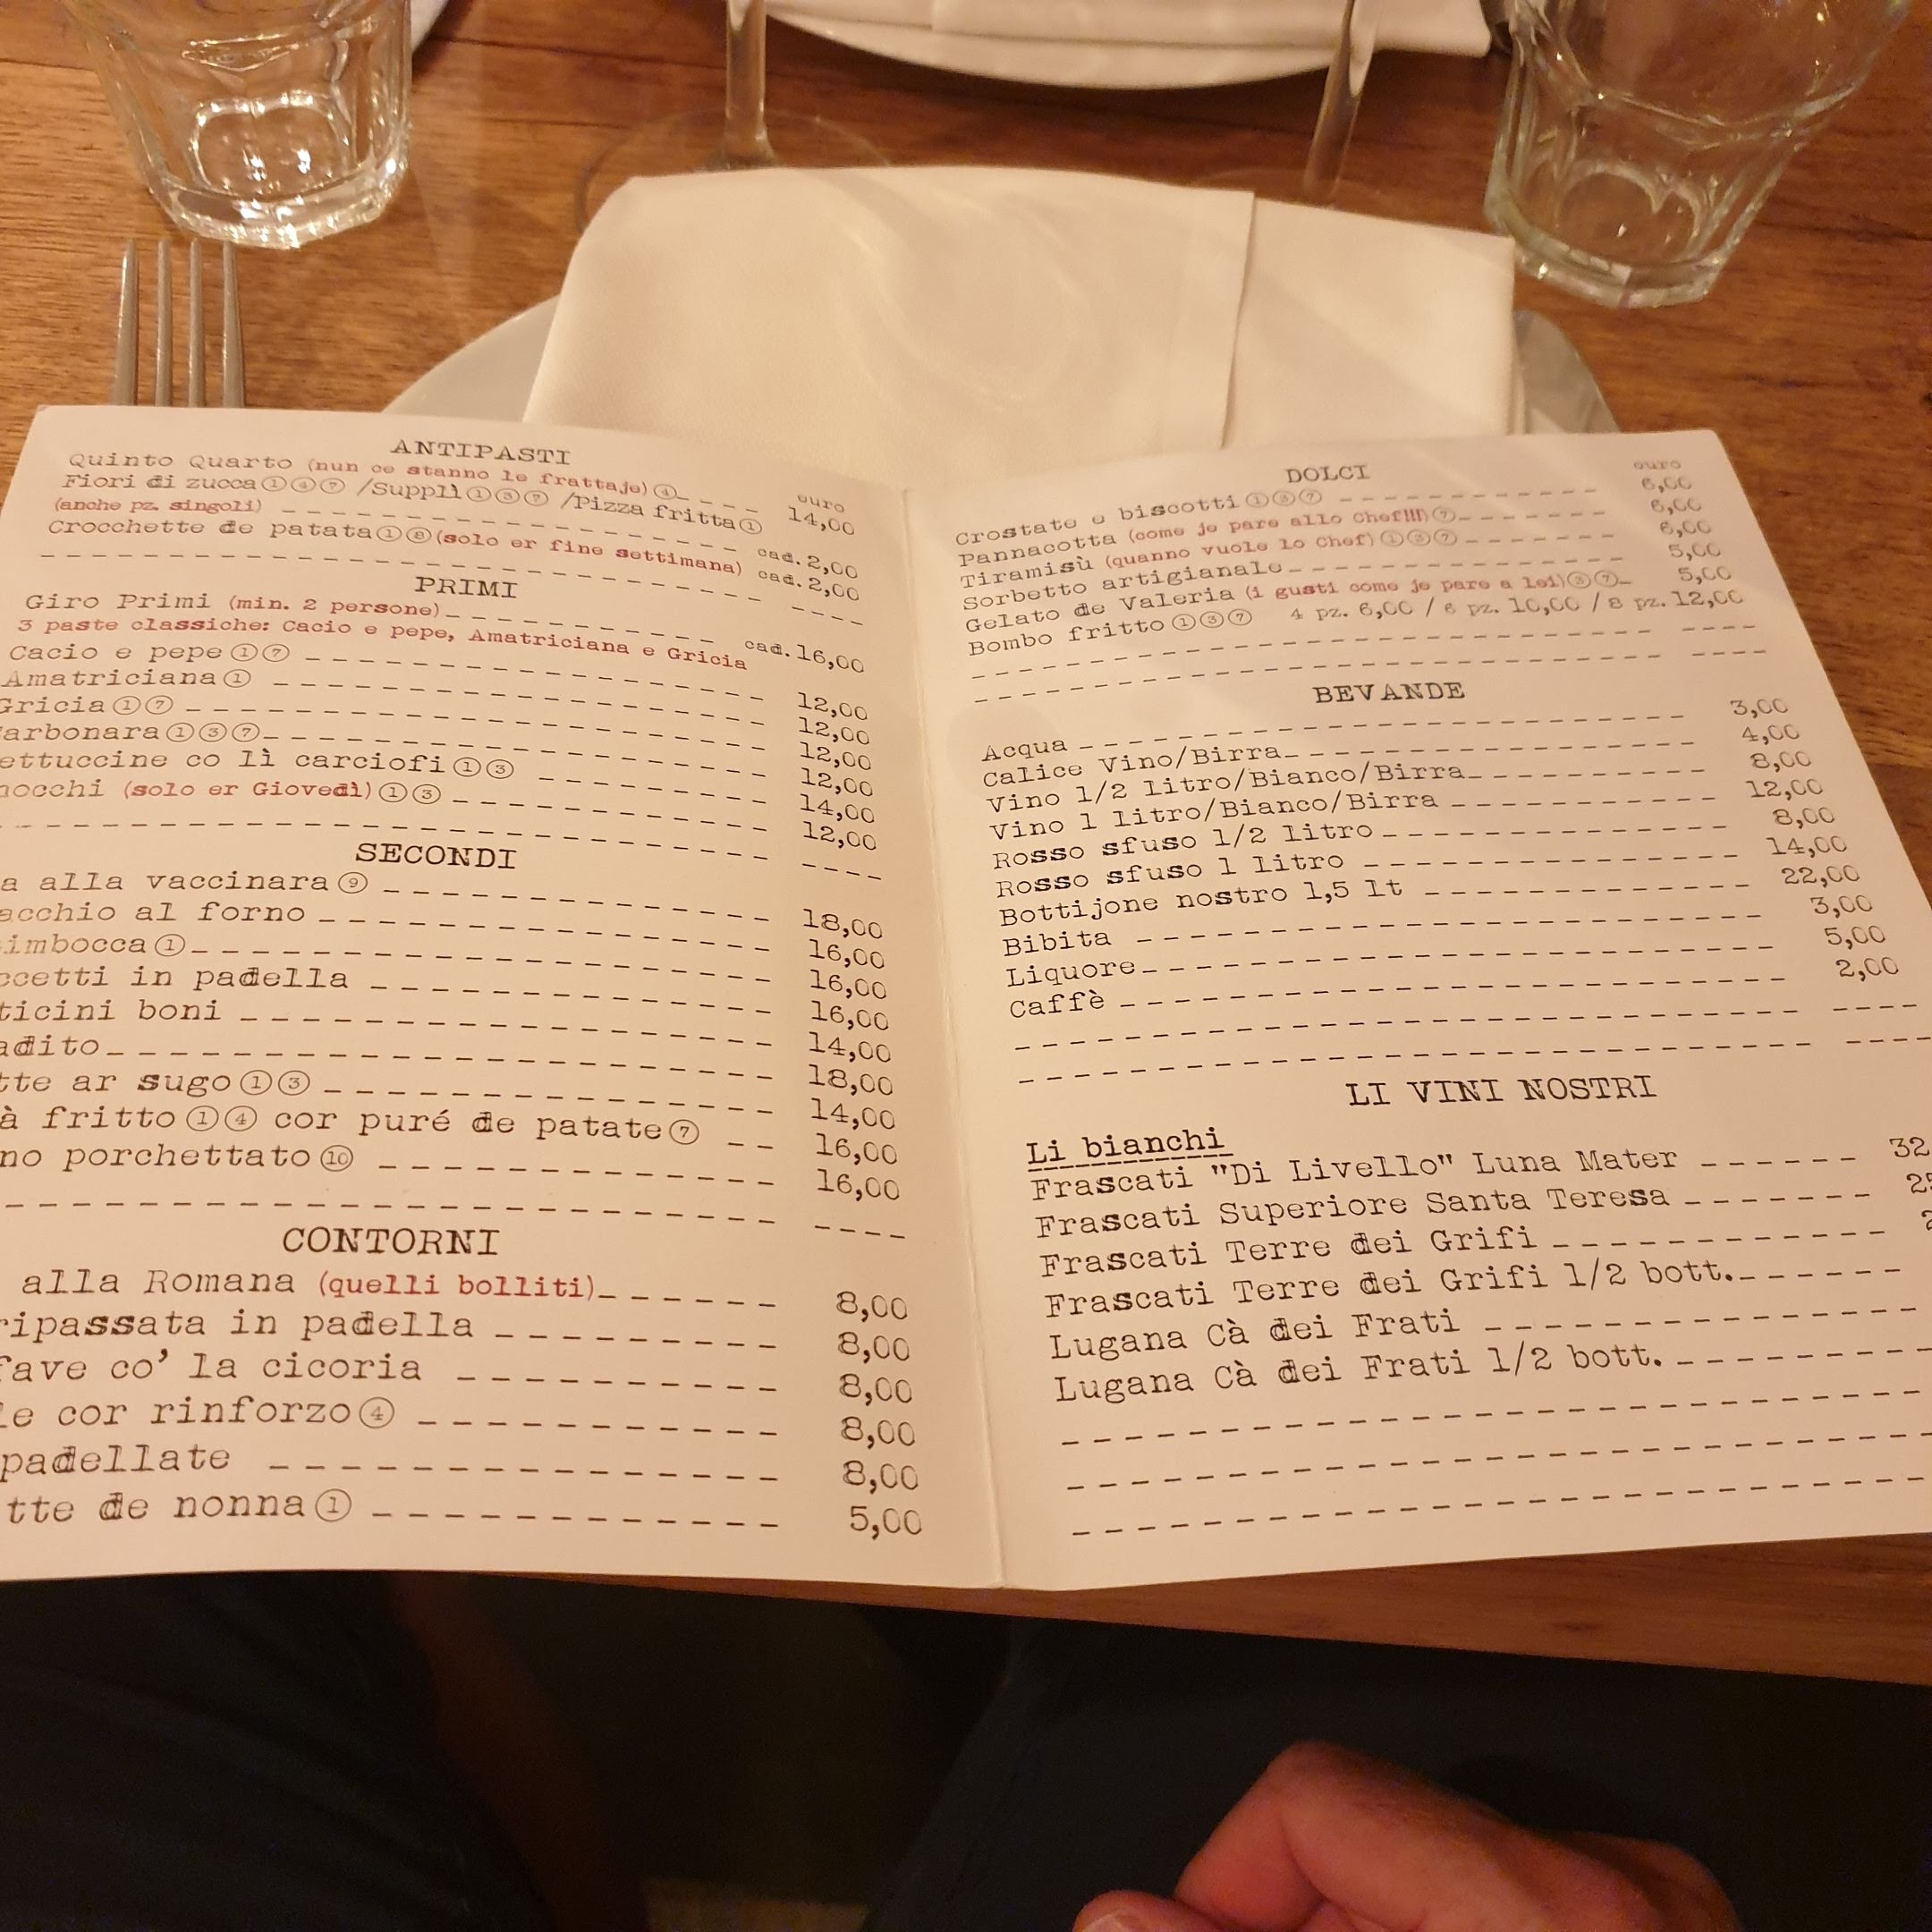 ANTIPASTI
euro
Quinto Quarto (nun ce stanno le frattaje) ④ 14,00
Fiori di zucca ①④⑦ /Supplì ①③⑦ /Pizza fritta ①
(anche pz. singoli) cad. 2,00
Crocchette de patata ①⑧ (solo er fine settimana) cad. 2,00
PRIMI
Giro Primi (min. 2 persone) cad. 16,00
3 paste classiche: Cacio e pepe, Amatriciana e Gricia
Cacio e pepe ①⑦ 12,00
Amatriciana ① 12,00
Gricia ①⑦ 12,00
arbonara ①③⑦ 12,00
ettuccine co lì carciofi ①③ 14,00
nocchi (solo er Giovedì) ①③ 12,00
SECONDI
a alla vaccinara ⑨ 18,00
acchio al forno 16,00
imbocca ① 16,00
ccetti in padella 16,00
ticini boni 14,00
adito 18,00
tte ar sugo ①③ 14,00
à fritto ①④ cor puré de patate ⑦ 16,00
no porchettato ⑩ 16,00
CONTORNI
alla Romana (quelli bolliti) 8,00
ripassata in padella 8,00
fave co' la cicoria 8,00
le cor rinforzo ④ 8,00
padellate 8,00
tte de nonna ① 5,00
DOLCI
euro
Crostate e biscotti ①③⑦ 6,00
Pannacotta (come je pare allo Chef!!!) ⑦ 6,00
Tiramisù (quanno vuole lo Chef) ①③⑦ 6,00
Sorbetto artigianale 5,00
Gelato de Valeria (i gusti come je pare a lei) ③⑦ 5,00
Bombo fritto ①③⑦ 4 pz. 6,00 / 6 pz. 10,00 / 8 pz. 12,00
BEVANDE
Acqua 3,00
Calice Vino/Birra 4,00
Vino 1/2 litro/Bianco/Birra 8,00
Vino 1 litro/Bianco/Birra 12,00
Rosso sfuso 1/2 litro 8,00
Rosso sfuso 1 litro 14,00
Bottijone nostro 1,5 lt 22,00
Bibita 3,00
Liquore 5,00
Caffè 2,00
LI VINI NOSTRI
Li bianchi
Frascati "Di Livello" Luna Mater 32
Frascati Superiore Santa Teresa
Frascati Terre dei Grifi
Frascati Terre dei Grifi 1/2 bott.
Lugana Cà dei Frati
Lugana Cà dei Frati 1/2 bott.